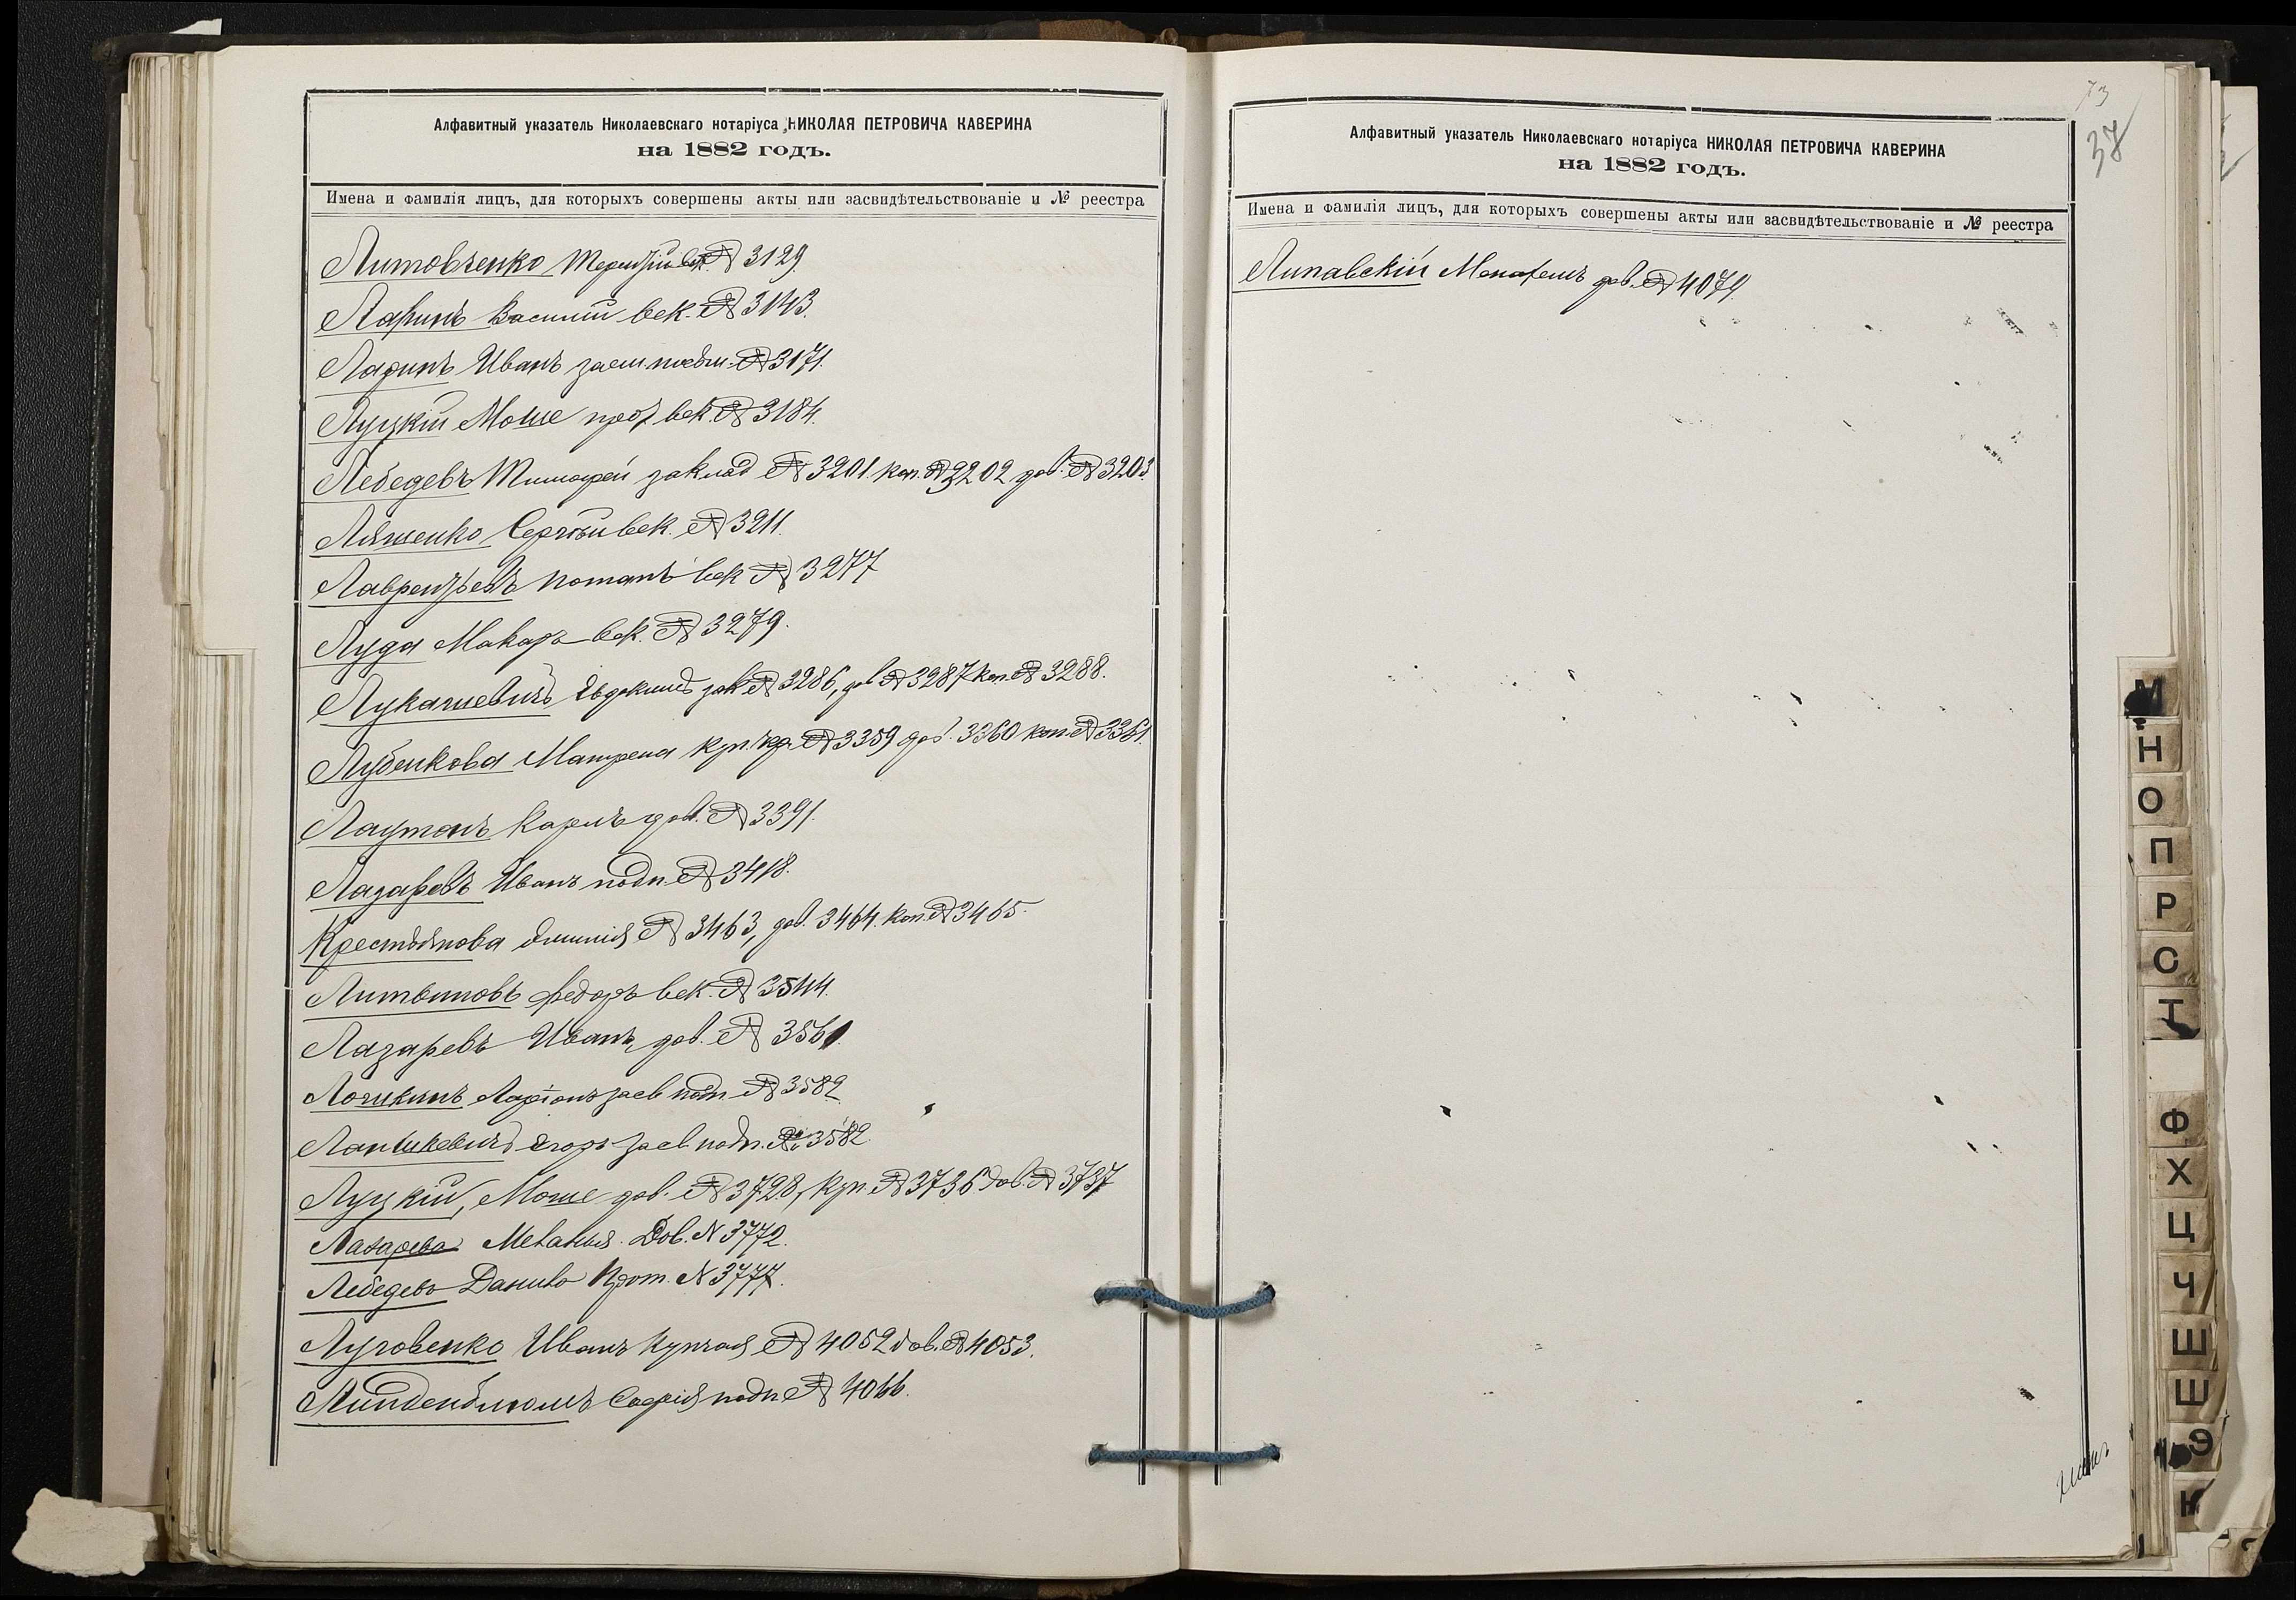 Алфавитный указатель Николаевскаго нотаріуса НИКОЛАЯ ПЕТРОВИЧА КАВЕРИНА
на 1882 годъ.
Имена и фамилія лицъ, для которыхъ совершены акты или засвидѣтельствованіе и № реестра
Литовченко Терентій век. № 3129
Ларинъ Василій век. № 3143.
Ларинъ Иванъ заем. письм. № 3171.
Луцкій Моше прот. век. № 3184.
Лебедевъ Тимофей заклад № 3201. коп. № 3202 дов. № 3203.
Ляшенко Сергѣй век. № 3211.
Лаврентьевъ Потапъ век № 3277
Луда Макаръ век. № 3279.
Лукашевичъ Евдокимъ зак № 3286, дов № 3287 коп. № 3288.
Лубенкова Матрена куп. кр. № 3359 дов. 3360 коп. № 3361.
Лаутанъ Карлъ дов. № 3391.
Лазаревъ Иванъ подп. № 3418.
Крестьянова Эмилія № 3463, дов. 3464. коп. № 3465.
Литвиновъ Федоръ век. № 3544.
Лазаревъ Иванъ дов. № 3561
Лочикинъ Ларіонъ засв подп. № 3582
Лапшкевичъ Егоръ засв. подп. № 3582.
Луцкій, Моше дов. № 3728, куп. № 3736 дов. № 3737
Лазарева Меланья. Дов. N 3772.
Лебедевъ Данило Прот. N 3777.
Луговенко Иванъ Купчая № 4052 дов. № 4053.
Линденблюмъ Софія подп № 4066.
73
37
Алфавитный указатель Николаевскаго нотаріуса НИКОЛАЯ ПЕТРОВИЧА КАВЕРИНА
на 1882 годъ.
Имена и фамилія лицъ, для которыхъ совершены акты или засвидѣтельствованіе и № реестра
Липавскій дов. № 4079.
М
Н
О
П
Р
С
Т
Ф
Х
Ц
Ч
Ш
Щ
Э